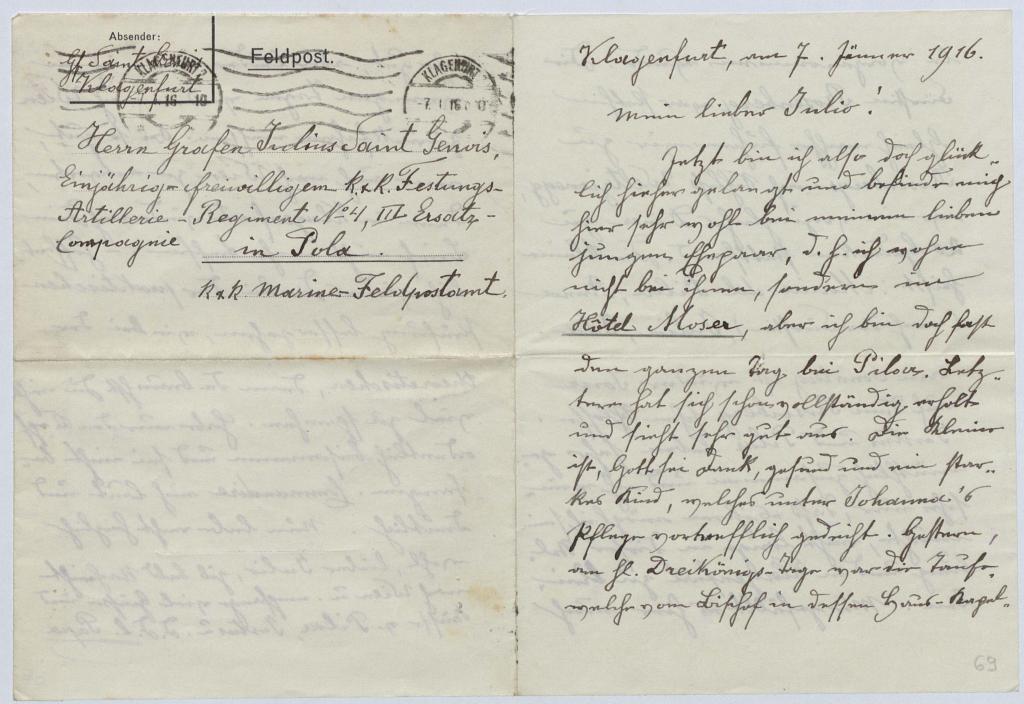 Absender:
Gf. Saint Genois
Klagenfurt
Feldpost.
KLAGENFURT 2
KLAGENFURT
Herrn Grafen Julius Saint Genois,
Einjährig-freiwilligem k.&k. Festungs-
Artillerie-Regiment No 4, III Ersatz-
Compagnie
in Pola.
k&k Marine-Feldpostamt.
Klagenfurt, am 7. Jänner 1916.
Mein lieber Julio!
Jetzt bin ich also doch glück-
lich hieher gelangt und befinde mich
hier sehr wohl bei meinem lieben
jungen Ehepaar, d.h. ich wohne
nicht bei ihnen, sondern im
Hôtel Moser, aber ich bin doch fast
den ganzen Tag bei Piloa. Letz-
tere hat sich schon vollständig erholt
und sieht sehr gut aus. Die Kleine
ist, Gott sei Dank, gesund und ein star-
kes Kind, welches unter Johanna's
Pflege vortrefflich gedeiht. Gestern,
am hl. Dreikönigs-Tage war die Taufe,
welche vom Bischof in dessen Haus-Kapel-
69